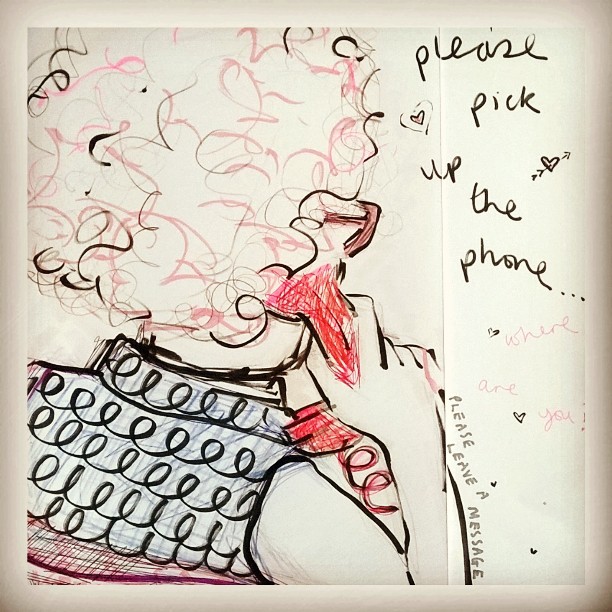 please
pick
up
the
phone...
where
are
you?
PLEASE LEAVE A MESSAGE